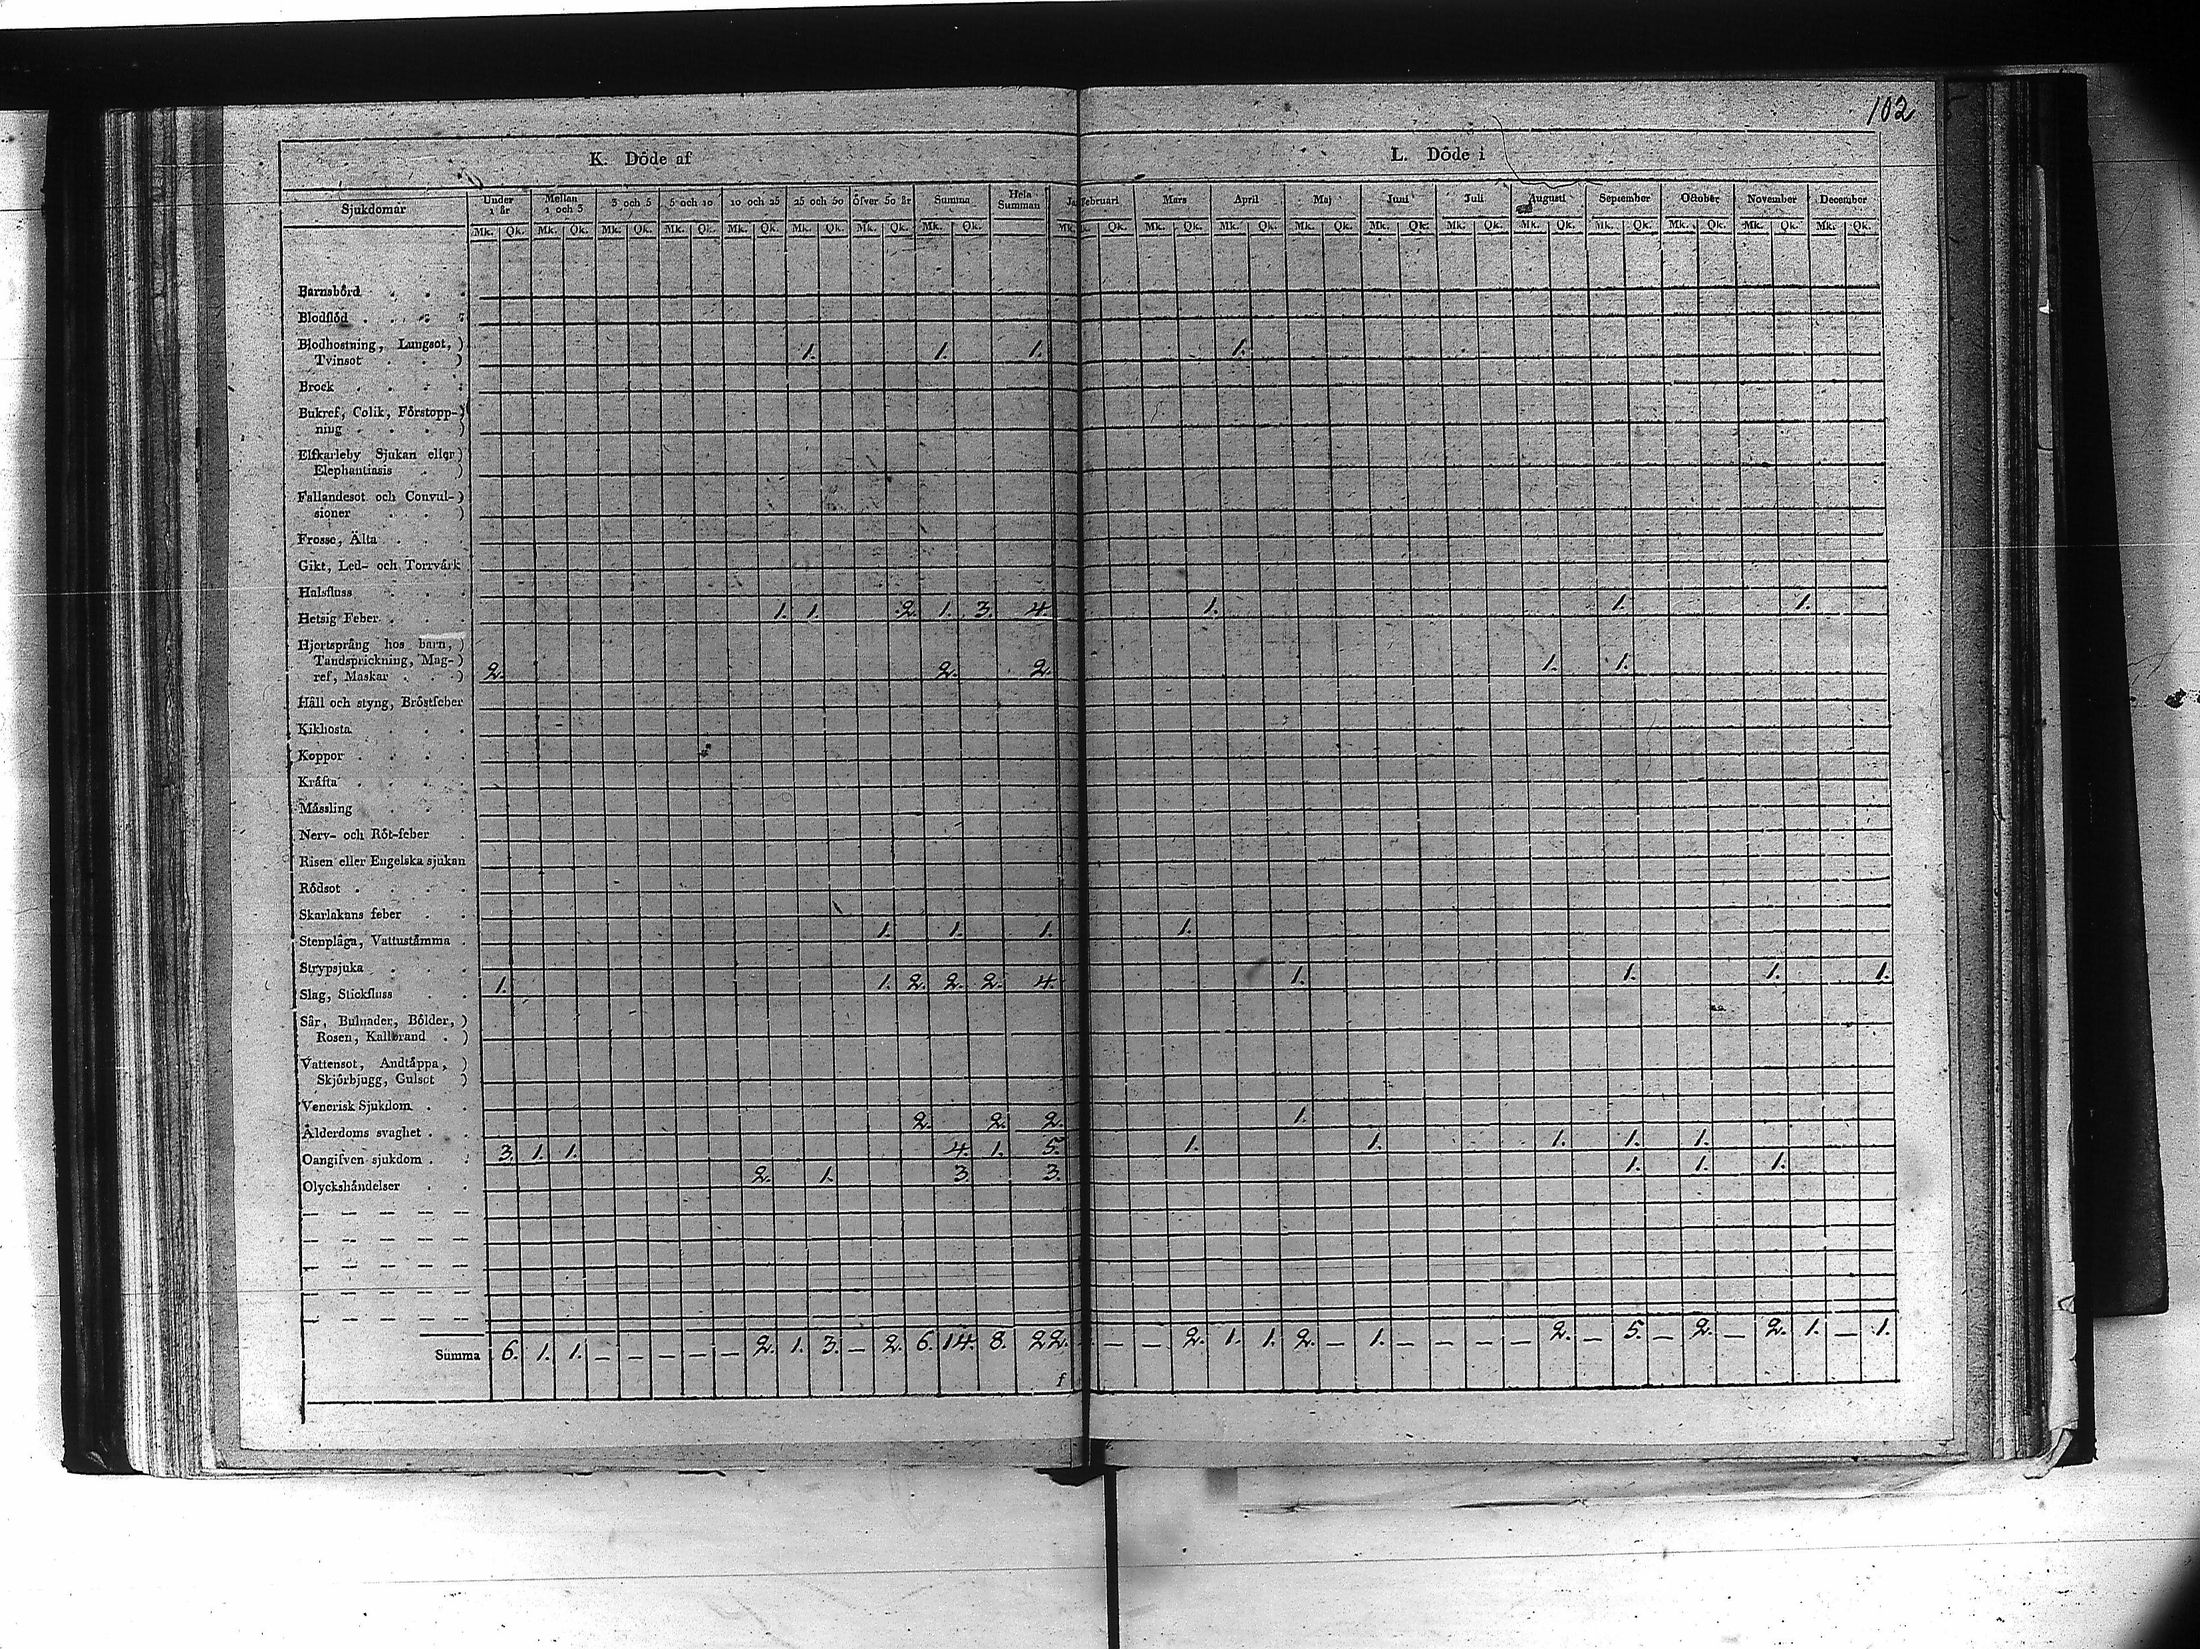 102
K. Döde af
L. Döde i
Sjukdomar Under 1 år Mellan 1 och 3 3 och 5 5 och 10 10 och 25 25 och 50 Öfver 50 år Summa Hela Summan Februari Mars April Maj Juni Juli Augusti September October November December
Mk. Qk. Mk. Qk. Mk. Qk. Mk. Qk. Mk. Qk. Mk. Qk. Mk. Qk. Mk. Qk. Mk. Qk. Mk. Qk. Mk. Qk. Mk. Qk. Mk. Qk. Mk. Qk. Mk. Qk. Mk. Qk. Mk. Qk. Mk. Qk. Mk. Qk.
Barnsbörd . . .
Blodflöd . . . .
Blodhostning, Lungsot, )
Tvinsot . . ) 1. 1. 1. 1.
Brock . . . .
Bukref, Colik, Förstopp-)
ning . . . . )
Elfkarleby Sjukan eller)
Elephantiasis . )
Fallandesot och Convul-)
sioner . . )
Frosse, Älta . .
Gikt, Led- och Torrvärk
Halsfluss . . .
Hetsig Feber . . . 1. 1. 2. 1. 3. 4. 1. 1. 1.
Hjortsprång hos barn, )
Tandsprickning, Mag-)
ref, Maskar . . ) 2. 2. 2. 1. 1.
Håll och styng, Bröstfeber
Kikhosta . . .
Koppor . . . .
Kräfta . . . .
Mässling . . .
Nerv- och Röt-feber .
Risen eller Engelska sjukan
Rödsot . . . .
Skarlakans feber . .
Stenplåga, Vattustämma . 1. 1. 1. 1.
Strypsjuka . . .
Slag, Stickfluss . . 1. 1. 2. 2. 2. 4. 1. 1. 1. 1.
Sår, Bulnader, Bölder, )
Rosen, Kallbrand . )
Vattensot, Andtäppa, )
Skjörbjugg, Gulsot )
Venerisk Sjukdom . .
Ålderdoms svaghet . . 2. 2. 2. 1.
Oangifven sjukdom . . 3. 1. 1. 4. 1. 5. 1. 1. 1. 1. 1.
Olyckshändelser . . 2. 1. 3. 3. 1. 1. 1.
Summa 6. 1. 1. — — — — — 2. 1. 3. — 2. 6. 14. 8. 22. — — 2. 1. 1. 2. — 1. — — — — 2. — 5. — 2. — 2. 1. — 1.
f